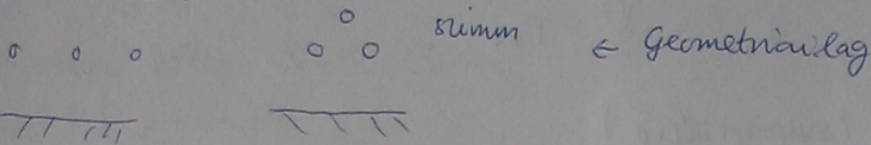 szimm ← Geometriailag